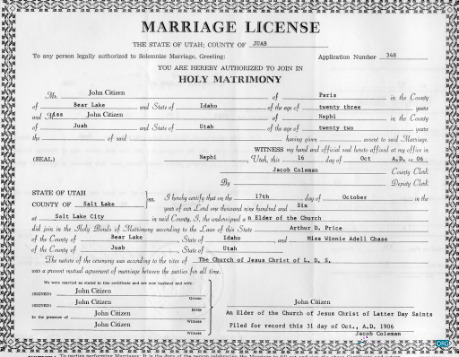 MARRIAGE LICENSE
THE STATE OF UTAH; COUNTY OF JUAB
To any person legally authorized to Solemnize Marriage, Greeting: Application Number 348
YOU ARE HEREBY AUTHORIZED TO JOIN IN
HOLY MATRIMONY
Mr. John Citizen of Paris in the County
of Bear Lake and State of Idaho of the age of twenty three years
and Miss John Citizen of Nephi in the County
of Juab and State of Utah of the age of twenty two years
the of said having given assent to said Marriage.
WITNESS my hand and official seal hereto affixed at my office in
(SEAL) Nephi, Utah, this 16 day of Oct A.D. 06
Jacob Coleman County Clerk
By Deputy Clerk
STATE OF UTAH
COUNTY OF Salt Lake ss. I hereby certify that on the 17th day of October in the
year of our Lord one thousand nine hundred and Six
at Salt Lake City in said County, I, the undersigned a n Elder of the Church
did join in the Holy Bonds of Matrimony according to the Laws of this State Arthur D. Price
of the County of Bear Lake, State of Idaho and Miss Winnie Adell Chase
of the County of Juab, State of Utah
The nature of the ceremony was according to the rites of The Church of Jesus Christ of L. D. S.
was a present mutual agreement of marriage between the parties for all time.
We were married as stated in this certificate and are now husband and wife.
(SIGNED) John Citizen
Groom
(SIGNED) John Citizen
Bride
In the presence of John Citizen
Witness
John Citizen
Witness
John Citizen
An Elder of the Church of Jesus Christ of Latter Day Saints
Filed for record this 31 day of Oct., A.D. 1906
Jacob Coleman
ORG